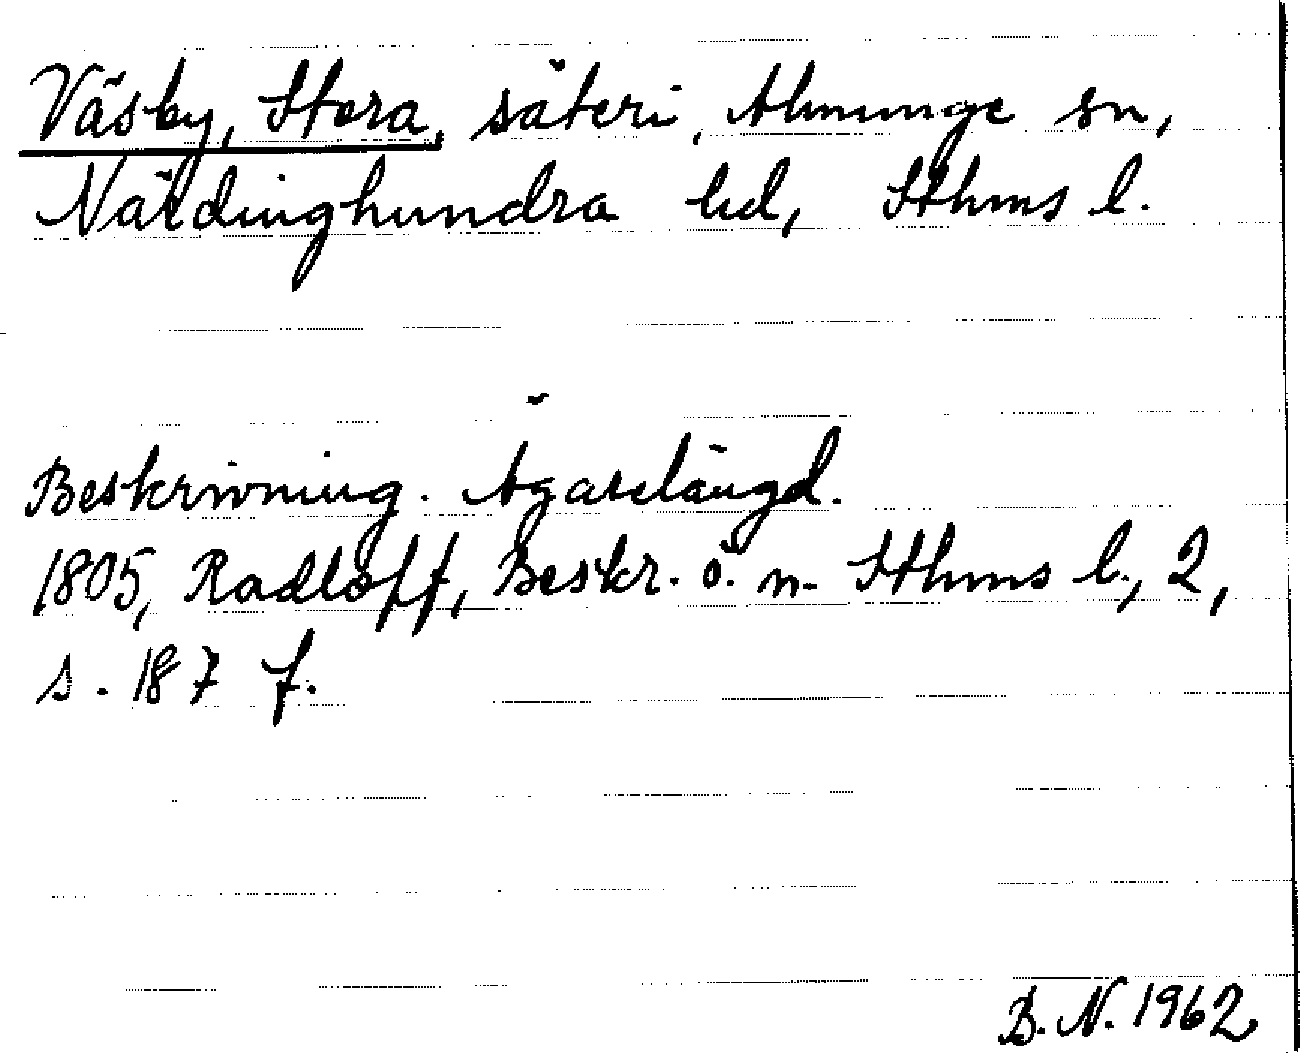 Väsby, Stora, säteri, Almunge sn,
Närdinghundra hd, Sthms l.
Beskrivning. Ägarelängd.
1805, Radloff, Beskr. ö. n. Sthms l., 2,
s. 187 f.
B. N. 1962